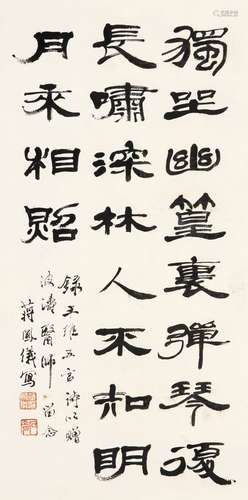 獨坐幽篁裏彈琴復
長嘯深林人不知明
月來相照
錄王維五言詩以贈
波濤醫師留念
蔣鳳儀寫